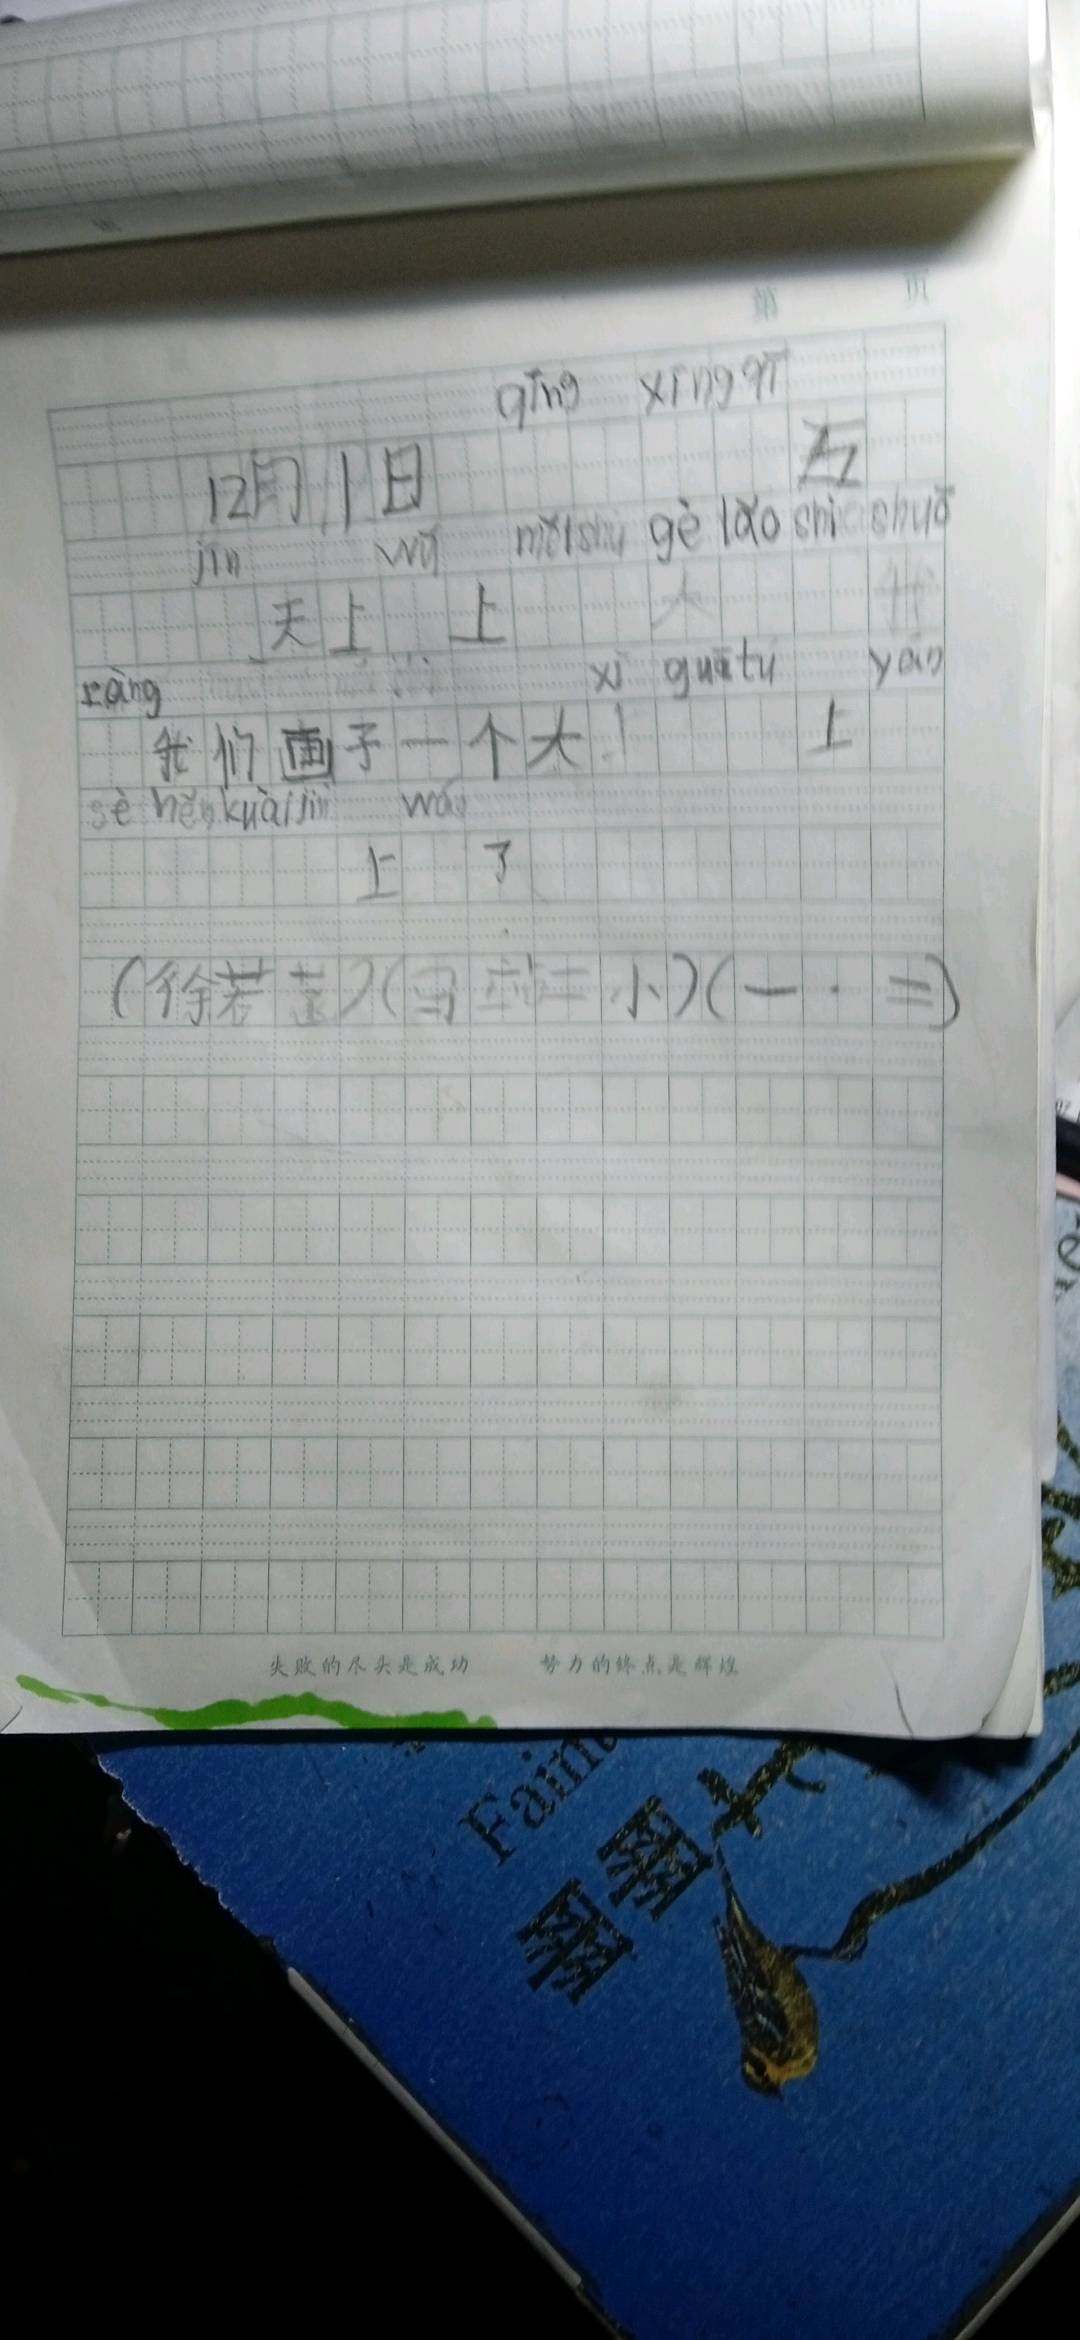 第 页
qīng xīngqī
12月1日 五
jīn wǔ měishù gè lǎo shī shuō
天上 上 大
ràng xī guā tú yán
我们画了一个大 上
sè hěn kuài jiù wán
上 了
(徐若 )( 小)(一·二)
失败的尽头是成功 努力的终点是辉煌
Faint
幽幽